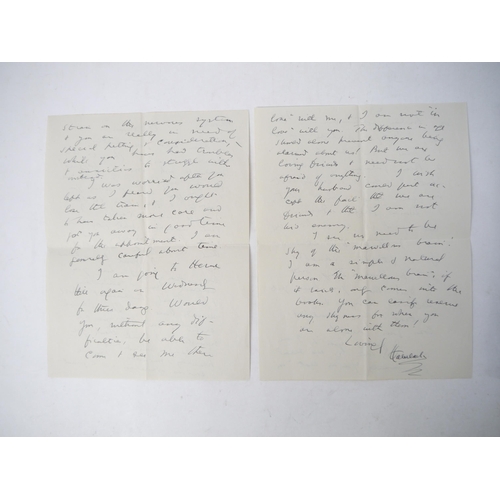 strain on the nervous system
& you are really in need of
special petting & consideration,
while you have had troubles
& anxieties to struggle with
I was worried after you
left as I feared you would
lose the train, & I ought
to have taken more care and
got you away in good time
for the appointment. I am
generally careful about time
I am going to Home
again on Wednesd
for three days. Would
you, without any dif-
ficulties, be able to
come & see me then
love" with me, & I am not "in
love" with you. The difference in age
should alone prevent anyone being
alarmed about us! But we are
loving friends & need not be
afraid of anything. I wish
your husband could just ac-
cept the fact that we are
friends & that I am not
his enemy.
no need to be
shy of the "marvellous brain"!
I am a simple & natural
person. The "marvellous brain", if
it exists, only comes into the
books. You can easily reserve
any shyness for when you
are alone with them!
Loving
Havelock